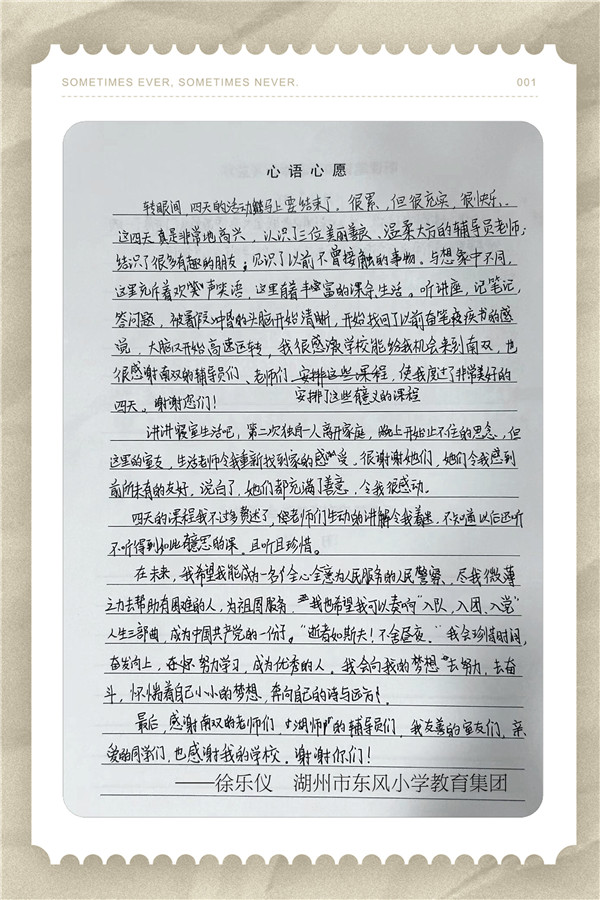 SOMETIMES EVER, SOMETIMES NEVER.
001
心语心愿
转眼间，四天的活动马上要结束了，很累，但很充实，很快乐。
这四天真是非常地高兴，认识了三位美丽善良、温柔大方的辅导员老师；
结识了很多有趣的朋友；见识了以前不曾接触的事物。与想象中不同，
这里充斥着欢声笑语，这里有着丰富的课余生活。听讲座，记笔记，
答问题，被暑假冲昏的头脑开始清晰，开始找回了以前奋笔疾书的感
觉，大脑又开始高速运转，我很感激学校能给我机会来到南双，也
很感谢南双的辅导员们、老师们，安排这些课程，使我度过了非常美好的
安排了这些有意义的课程
四天。谢谢您们！
讲讲寝室生活吧，第二次独自一人离开家庭，晚上开始止不住的思念，但
这里的室友，生活老师令我重新找到家的感受。很谢谢她们，她们令我感到
前所未有的友好，说白了，她们都充满了善意，令我很感动。
四天的课程我不过多赘述了，老师们生动的讲解令我着迷，不知道以后还听
不听得到如此有意思的课，且听且珍惜。
在未来，我希望我能成为一名全心全意为人民服务的人民警察，尽我微薄
之力去帮助有困难的人，为祖国服务，我也希望我可以奏响“入队、入团、入党”
人生三部曲，成为中国共产党的一份子。“逝者如斯夫！不舍昼夜。”我会珍惜时间，
奋发向上，努力学习，成为优秀的人。我会向我的梦想去努力，去奋
斗，怀惴着自己小小的梦想，奔向自己的诗与远方！
最后，感谢南双的老师们，“湖师”的辅导员们，我友善的室友们，亲
爱的同学们，也感谢我的学校，谢谢你们！
——徐乐仪 湖州市东风小学教育集团